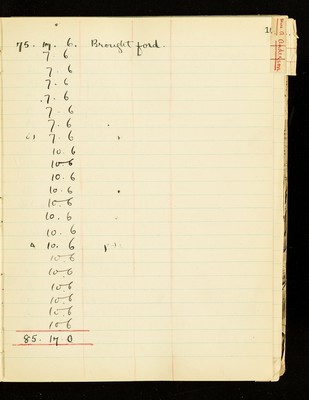 75. 17. 6. Brought ford.
7 6
7 6
7. 6
7. 6
7. 6
7. 6
7. 6
10. 6
10-6
10. 6
10. 6
10-6
10. 6
10. 6
a 10. 6
10-6
10-6
10-6
10-6
10-6
10-6
85. 17 0